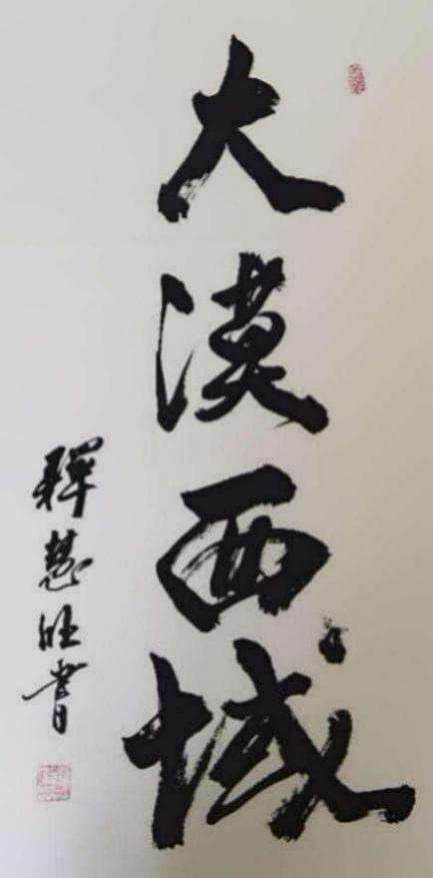 大漠西域
釋慧旺書